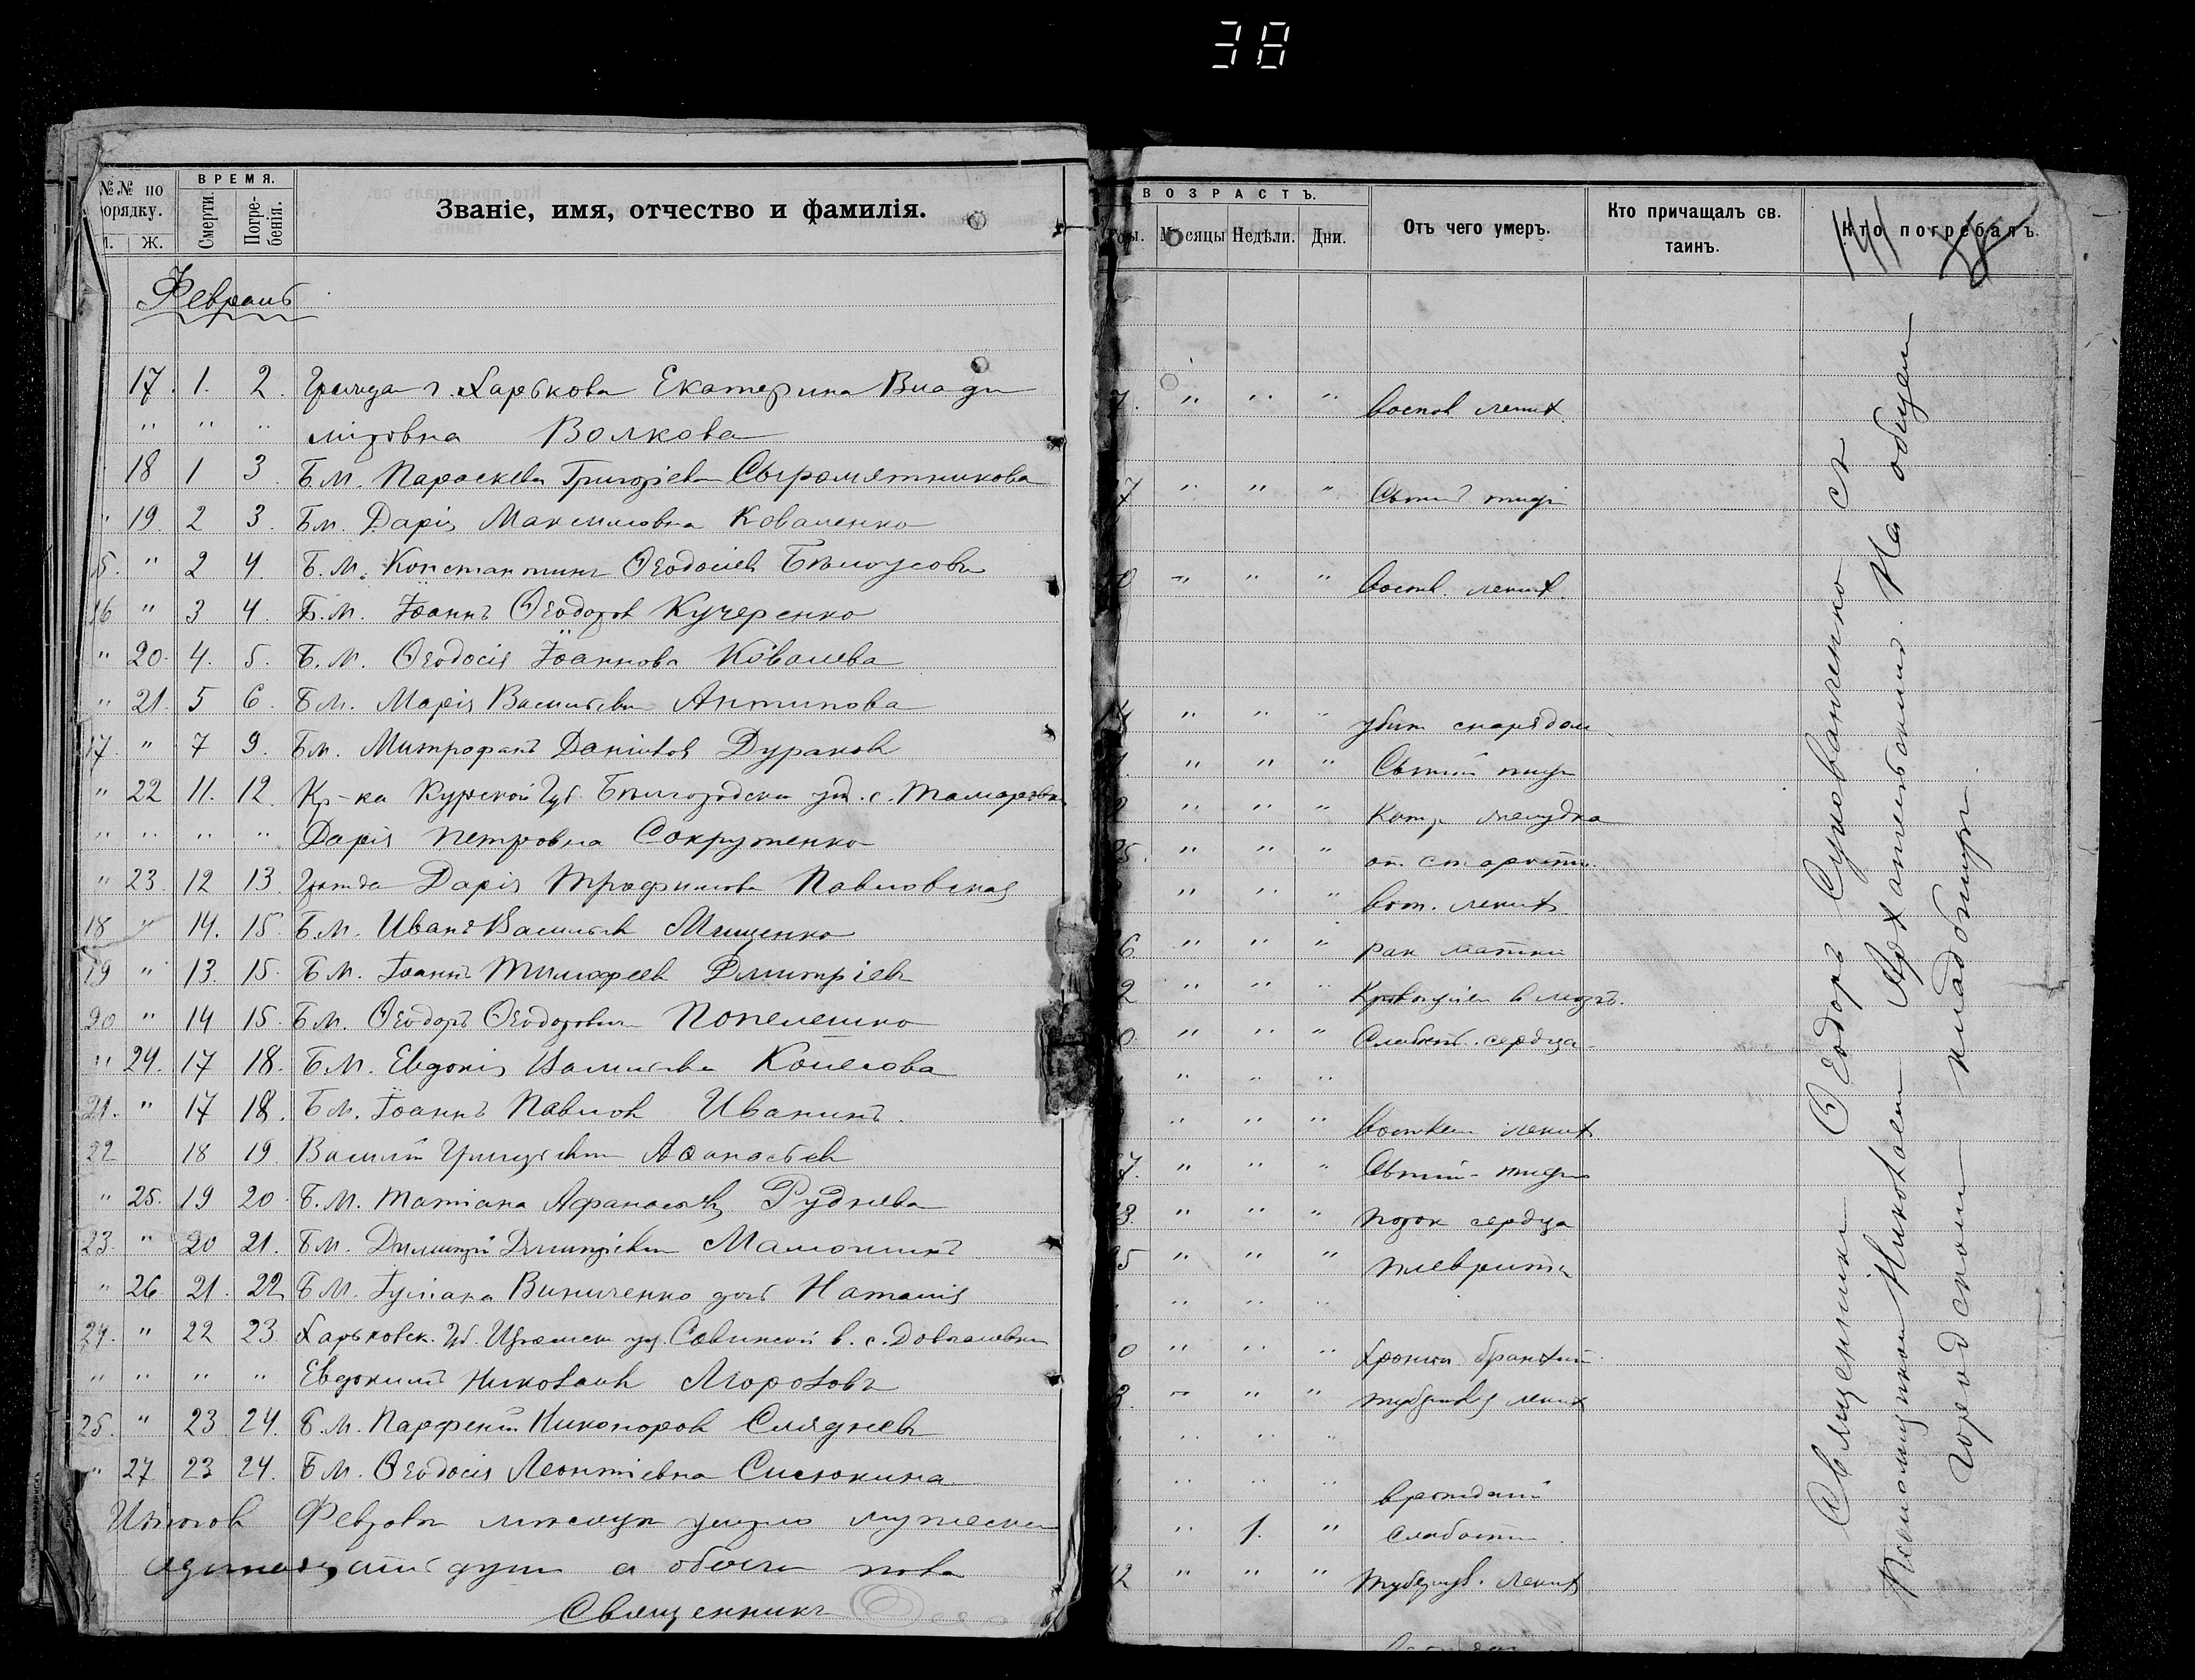 38
№№ по порядку.
ВРЕМЯ.
Смерти.
Погребенія.
Званіе, имя, отчество и фамилія.
Ж.
Февраль
17. 1. 2. г. Харькова Екатерина Влади
" " " мировна Волкова
18 1 3 Б.М. Параскева Григоріева Сыромятникова
" 19 2 3. Б.М. Дарія Максимовна Коваленко
15. " 2 4. Б.М. Константинъ Ѳеодосіев Бѣлоусовъ
16 " 3 4. Б.М. Іоаннъ Ѳеодоров Кучеренко
" 20. 4. 5. Б.М. Ѳеодосія Іоаннова Ковалева
" 21. 5 6. Б.М. Марія Васильевн Антипова
17. " 7 9. Б.М. Митрофанъ Даніилов Дураков
" 22 11. 12. Кр-ка Курской Губ. Бѣлгородск уѣ. с. Томаровк
" " " " Дарія Петровна Сокруженко
" 23. 12 13. Дарія Трофимова Павловская
18 " 14. 15. Б.М. Иванъ Васильев Мищенко
19 " 13. 15. Б.М. Іоаннъ Тимофеев Дмитріевъ
20 " 14 15. Б.М. Ѳеодоръ Ѳеодорович Попелешко
" 24. 17 18. Б.М. Евдокія Васильева Копелова
21. " 17 18. Б.М. Іоаннъ Павлов Иванинъ.
22 18 19. Василій Аѳанасьев
" 25. 19 20. Б.М. Татіана Афанасьев Руднева
23. " 20 21. Б.М. Димитрій Димитріевич Мамонинъ
" 26 21. 22 Б.М. Іуліана Виниченко доч Наталія
24. " 22 23. Харьковск. Губ. Изюмск уѣ. Савинской в. с. Довгалевки
" " " " Евдокимъ Николаев Морозовъ
25. " 23 24. Б.М. Парфеній Никоноров Слядневъ
" 27 23 24. Б.М. Ѳеодосія Леонтіевна Сисюкина
Итого в Феврал мѣсяцѣ умерло мужеска
одинадцать душ а обоего пола
Священникъ
ВОЗРАСТЪ.
Годы. Мѣсяцы Недѣли. Дни.
Отъ чего умеръ.
Кто причащалъ св. таинъ.
Кто погребалъ.
7. " " " воспов легких.
7 " " " Сыпной тиф
0 " " " воспов. легких.
4 " " " убит снарядом
" " " Сыпной тиф
" " " желудка
5. " " " от старости.
" " " восп. легких
6. " " " рак матки
2 " " " Кровоизліян в мозгъ.
0. " " " Слабост. сердца
" " "
" " " воспален легких
7. " " " Сыпной тиф
3. " " " порок сердца
5 " " " плевритъ
" " "
0 " " " Хронич бронхит
3. " " " туберкул легких
" " "
" " " врожданій
" 1. " слабости.
12 " " " туберкул. легких
Священник Ѳеодоръ Сукованченко съ
Псаломщиком Николаем Архангельскимъ. На общем
городском кладбищѣ.